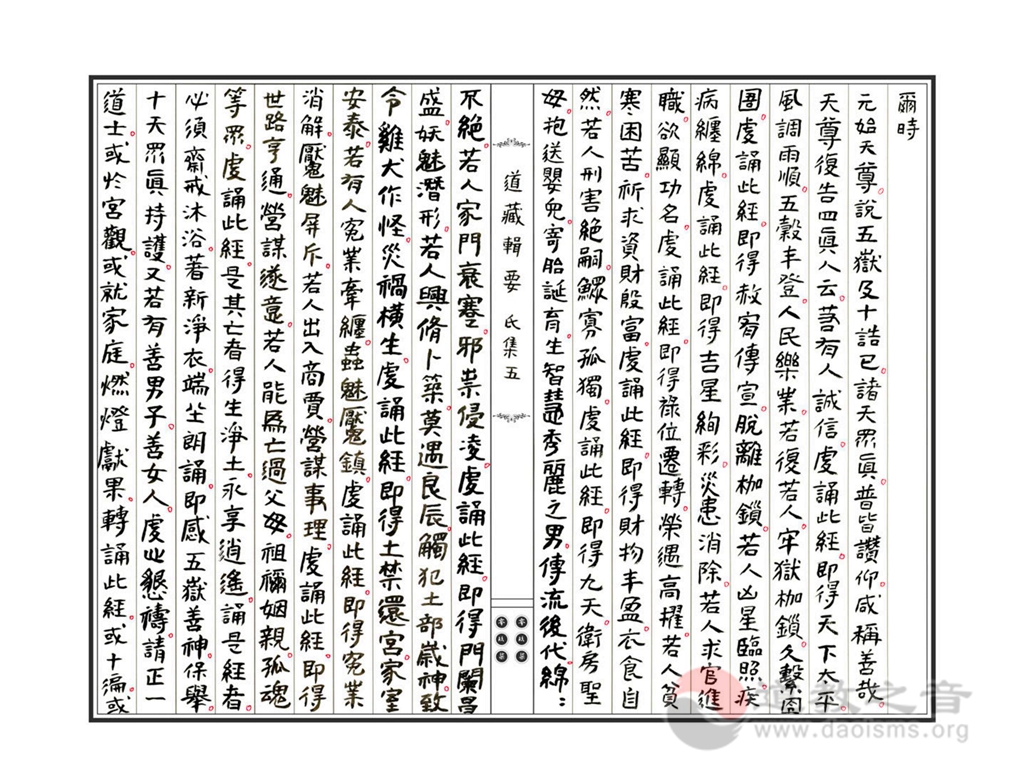 爾時
元始天尊說五嶽及十誥已諸天眾真普皆讚仰咸稱善哉
天尊復告四真人云若有人誠信虔誦此經即得天下太平
風調雨順五穀丰登人民樂業若復若人牢獄枷鎖久繫囹
圄虔誦此經即得赦宥傳宣脫離枷鎖若人凶星臨照疾
病纏綿虔誦此經即得吉星絢彩災患消除若人求官進
職欲顯功名虔誦此經即得祿位遷轉榮遇高擢若人貧
寒困苦祈求資財殷富虔誦此經即得財物丰盈衣食自
然若人刑害絕嗣鰥寡孤獨虔誦此經即得九天衛房聖
母抱送嬰兒寄胎誕育生智慧秀麗之男傳流後代綿:
道藏輯要 氐集五
不絕若人家門衰蹇邪祟侵凌虔誦此經即得門闌昌
盛妖魅潛形若人興脩卜築莫遇良辰觸犯土部歲神致
令雞犬作怪災禍橫生虔誦此經即得土禁還宮家室
安泰若有人冤業牽纏蟲魅魘鎮虔誦此經即得冤業
消解魘魅屏斥若人出入商賈營謀事理虔誦此經即得
世路亨通營謀遂意若人能為亡過父母祖禰姻親孤魂
等眾虔誦此經是其亡者得生淨土永享逍遙誦是經者
必須齋戒沐浴著新淨衣端坐朗誦即感五嶽善神保舉
十天眾真持護又若有善男子善女人虔心懇禱請正一
道士或於宮觀或就家庭燃燈獻果轉誦此經或十徧或
道教之音
www.daoisms.org